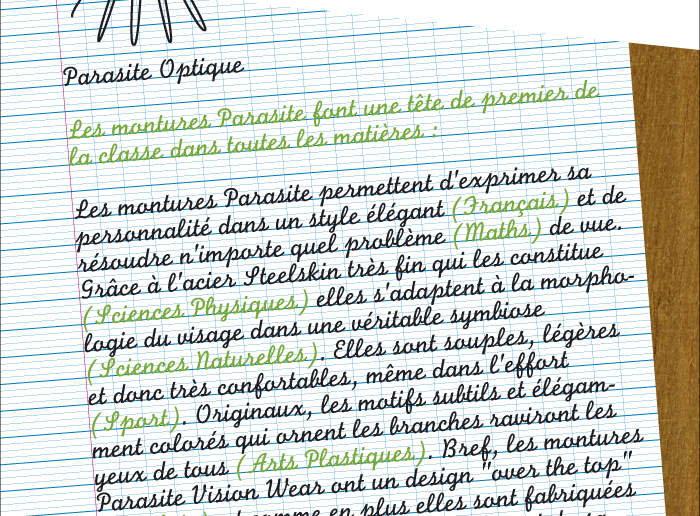 Parasite Optique
Les montures Parasite font une tête de premier de
la classe dans toutes les matières :
Les montures Parasite permettent d'exprimer sa
personnalité dans un style élégant (Français) et de
résoudre n'importe quel problème (Maths) de vue.
Grâce à l'acier Steelskin très fin qui les constitue
(Sciences Physiques) elles s'adaptent à la morpho-
logie du visage dans une véritable symbiose
(Sciences Naturelles). Elles sont souples, légères
et donc très confortables, même dans l'effort
(Sport). Originaux, les motifs subtils et élégam-
ment colorés qui ornent les branches raviront les
yeux de tous (Arts Plastiques). Bref, les montures
Parasite Vision Wear ont un design "over the top"
comme en plus elles sont fabriquées